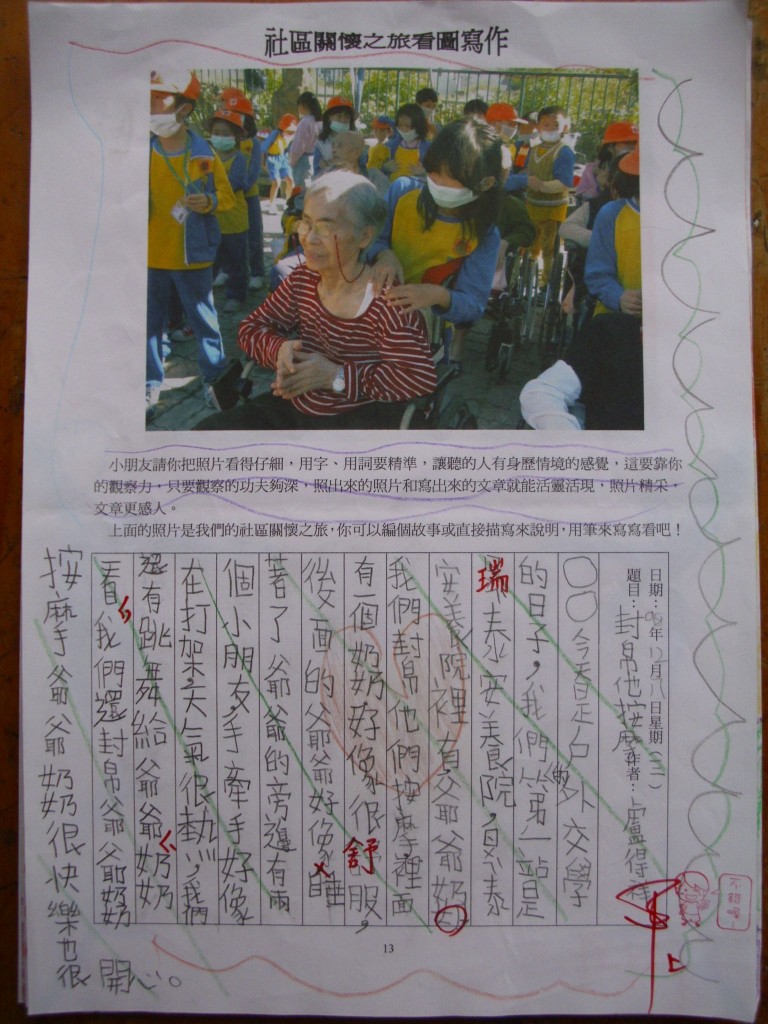 社區關懷之旅看圖寫作
小朋友請你把照片看得仔細，用字、用詞要精準，讓聽的人有身歷情境的感覺，這要靠你
的觀察力，只要觀察的功夫夠深，照出來的照片和寫出來的文章就能活靈活現，照片精采，
文章更感人。
上面的照片是我們的社區關懷之旅，你可以編個故事或直接描寫來說明，用筆來寫寫看吧！
日期：98年12月八日星期(二)
題目：封帛他按摩作者：盧得
〇〇今看是戶外交學
的日子，我們第一站是
瑞泰安美院，泰
安美院裡有爺爺奶
我們封帛他們按摩裡面
有一個奶奶好像很舒服，
後面的爺爺好像睡
著了爺爺的旁邊有兩
個小朋友手牽手好像
在打架，天氣很熱，我們
還有跳舞給爺爺奶奶
看我們還封帛爺爺奶奶
按摩爺爺奶奶很快樂也很
開心。
13